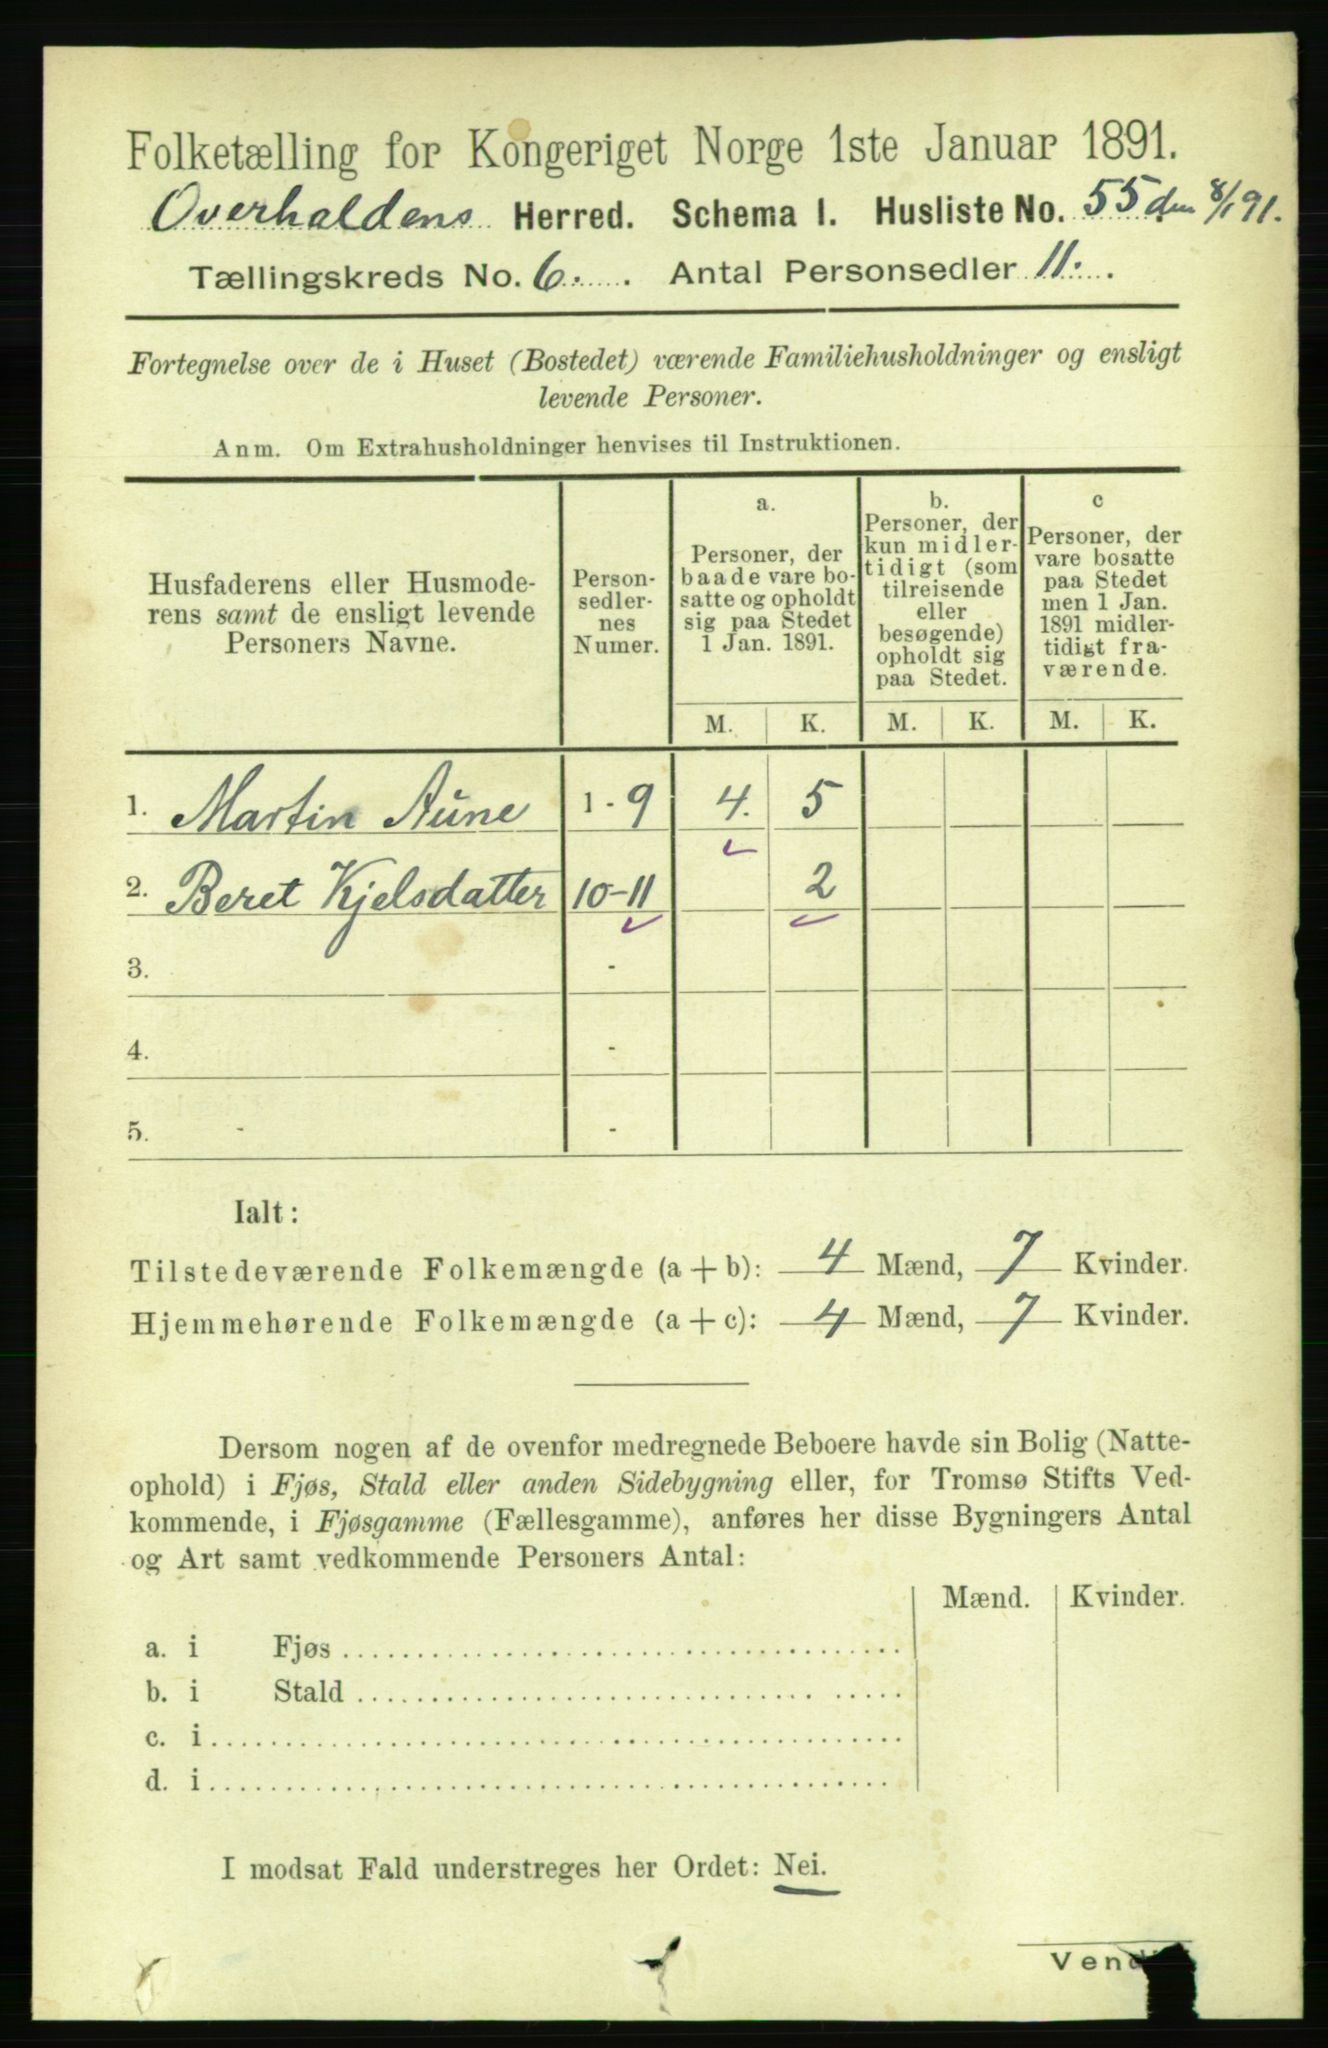 Folketælling for Kongeriget Norge 1ste Januar 1891.
Overhaldens Herred. Schema I. Husliste No. 55 den 8/1 91.
Tællingskreds No. 6. Antal Personsedler 11.
Fortegnelse over de i Huset (Bostedet) værende Familiehusholdninger og ensligt
levende Personer.
Anm. Om Extrahusholdninger henvises til Instruktionen.
Husfaderens eller Husmode-
rens samt de ensligt levende
Personers Navne.
Person-
sedler-
nes
Numer.
a.
Personer, der
baade vare bo-
satte og opholdt
sig paa Stedet
1 Jan. 1891.
b.
Personer, der
kun midler-
tidigt (som
tilreisende
eller
besøgende)
opholdt sig
paa Stedet.
c
Personer, der
vare bosatte
paa Stedet
men 1 Jan.
1891 midler-
tidigt fra-
værende.
M. K. M. K. M. K.
1. Martin Aune 1 - 9 4. 5
2. Beret Kjelsdatter 10-11 2
3. -
4. -
5. - -
Ialt:
Tilstedeværende Folkemængde (a + b): 4 Mænd, 7 Kvinder.
Hjemmehørende Folkemængde (a + c): 4 Mænd, 7 Kvinder.
Dersom nogen af de ovenfor medregnede Beboere havde sin Bolig (Natte-
ophold) i Fjøs, Stald eller anden Sidebygning eller, for Tromsø Stifts Ved-
kommende, i Fjøsgamme (Fællesgamme), anføres her disse Bygningers Antal
og Art samt vedkommende Personers Antal:
Mænd. Kvinder.
a. i Fjøs
b. i Stald
c. i
d. i
I modsat Fald understreges her Ordet: Nei.
Vend